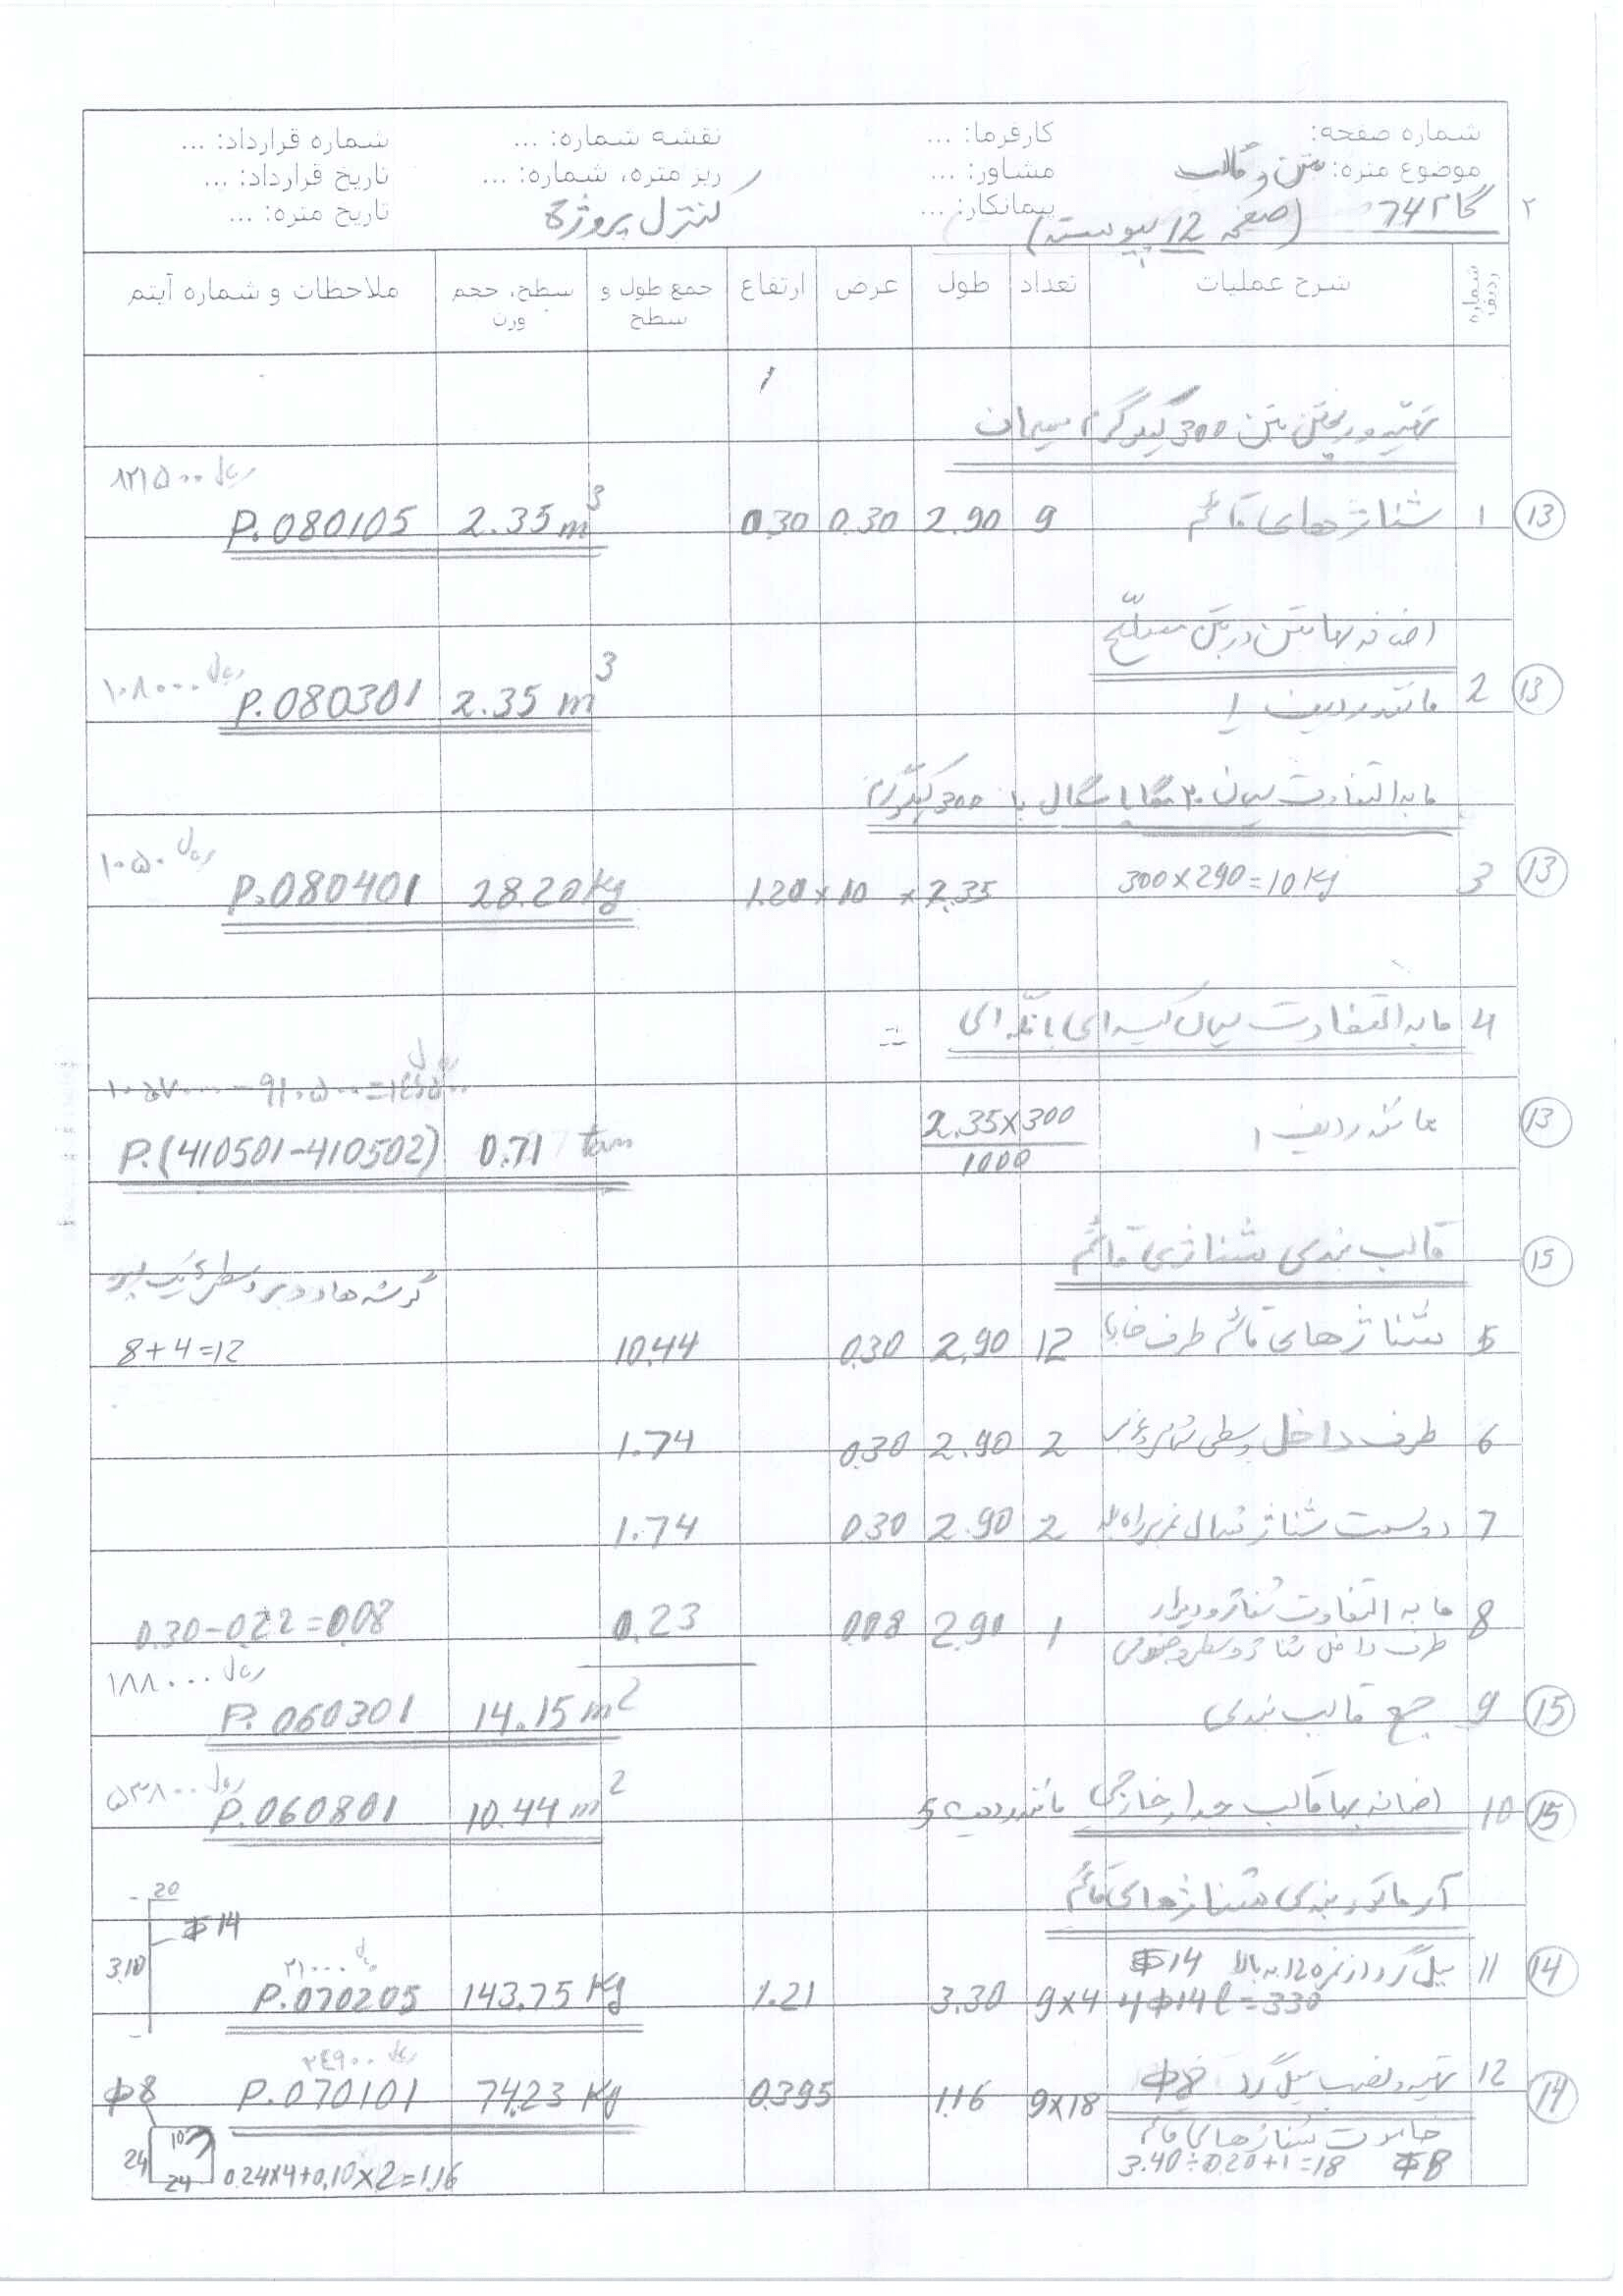 شماره صفحه: کارفرما: ... نقشه شماره: ... شماره قرارداد: ...
موضوع متره: بتن و قالب مشاور: ... ریز متره، شماره: ... تاریخ قرارداد: ...
۲ گام 74 (صفحه 12 پیوست) پیمانکار: ... کنترل پروژه تاریخ متره: ...
شماره ردیف شرح عملیات تعداد طول عرض ارتفاع جمع طول و سطح سطح، حجم ورن ملاحظات و شماره آیتم
تهیه و ریختن بتن 300 کیلوگرم سیمان
۸۲۱۵۰۰ ریال
13 1 شناژهای قائم 9 2.90 0.30 0.30 2.35 m3 P.080105
اضافه بها بتن در بتن مسلح
۱۰۸۰۰۰ ریال
13 2 مانند ردیف 1 2.35 m3 P.080301
مابه التفاوت سیمان ۲۰ مگاپاسگال با 300 کیلوگرم
۱۰۵۰ ریال
13 3 300×290=10 kg 2.35 × 10 × 1.20 28.20 kg P.080401
4 مابه التفاوت سیمان کیسه ای با فله ای
ریال
13 مانند ردیف 1 2.35×300 0.71 ton P.(410501-410502)
1000
15 قالب بندی شناژی قائم
گوشه ها دوبر وسطی یک بر
5 شناژهای قائم طرف خارج 12 2.90 0.30 10.44 8+4=12
6 طرف داخل وسطی 2 2.90 0.30 1.74
7 دو سمت شناژ شمال غربی راه پله 2 2.90 0.30 1.74
8 مابه التفاوت شناژ و دیوار 1 2.90 0.08 0.23 0.30-0.22=0.08
طرف داخل شناژ وسطی جنوبی
۱۸۸۰۰۰ ریال
15 9 جمع قالب بندی 14.15 m2 P.060301
۵۳۸۰۰ ریال
15 10 اضافه بها قالب جدار خارجی مانند ردیف 5 10.44 m2 P.060801
آرماتور بندی شناژهای قائم
20
Φ14
3.10
14 11 میل گرد از نمره 12 به بالا Φ14
۲۱۰۰۰ ریال
4Φ14 l=330 9×4 3.30 1.21 143.75 kg P.070205
۲۴۹۰۰ ریال
14 12 تهیه و نصب میل گرد Φ8 9×18 1.16 0.395 74.23 kg P.070101 Φ8
خاموت شناژهای قائم
Φ8 3.40÷0.20+1=18
24 10
24 0.24×4+0.10×2=1.16